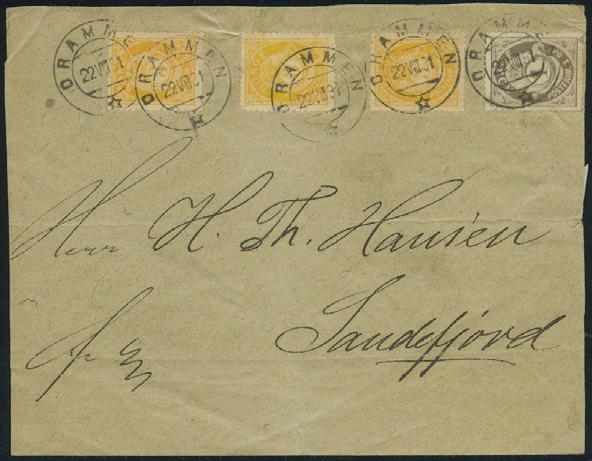 DRAMMEN
22 VIII 91
DRAMMEN
22 VIII 91
DRAMMEN
22 VIII 91
DRAMMEN
22 VIII 91
DRAMMEN
Herr H. Th. Hansen
Sandefjord